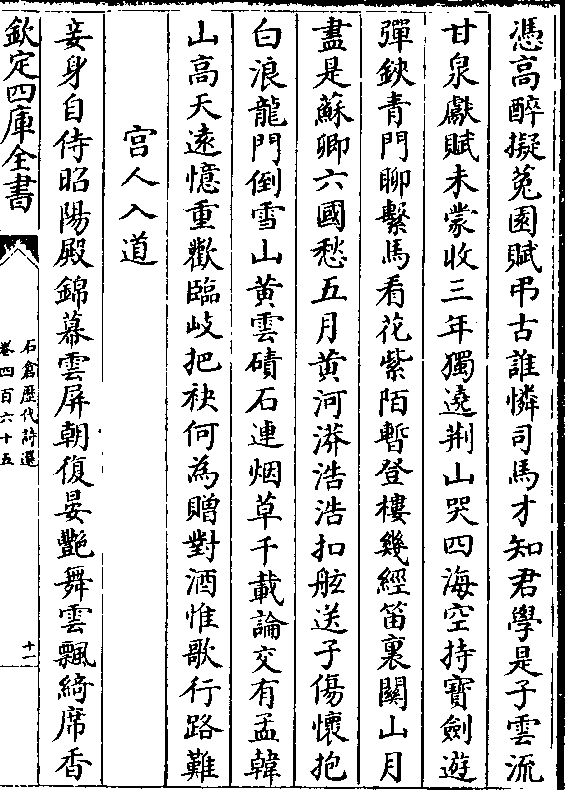 憑高醉擬菟園賦弔古誰憐司馬才知君學是子雲流
甘泉獻賦未蒙收三年獨遶荆山哭四海空持寶劍遊
彈鋏青門聊繫馬看花紫陌暫登樓幾經笛裏關山月
盡是蘇卿六國愁五月黄河漭浩浩扣舷送子傷懷抱
白浪龍門倒雪山黄雲磧石連烟草千載論交有孟韓
山高天遠憶重歡臨岐把袂何為贈對酒惟歌行路難
宫人入道
妾身自侍昭陽殿錦幕雲屏朝復晏艶舞雲飄綺席香
欽定四庫全書
石倉歷代詩選
卷四百六十五
十一